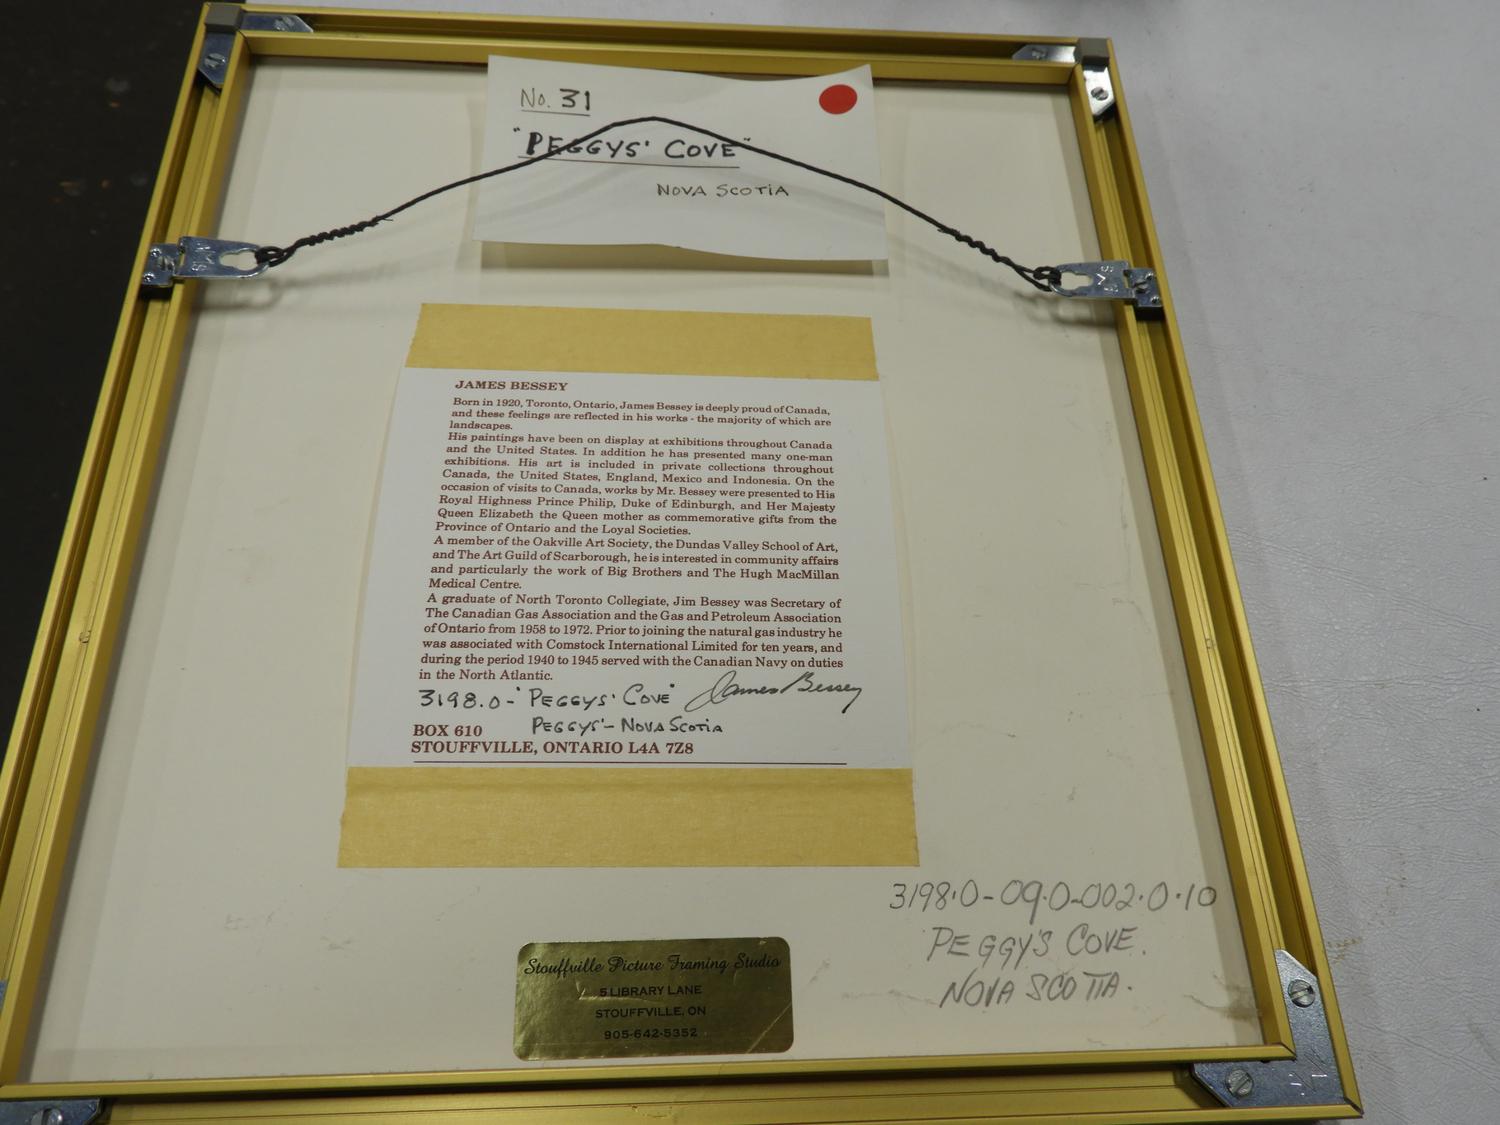 No. 31
"PEGGYS' COVE"
NOVA SCOTIA
JAMES BESSEY
Born in 1920, Toronto, Ontario, James Bessey is deeply proud of Canada,
and these feelings are reflected in his works - the majority of which are
landscapes.
His paintings have been on display at exhibitions throughout Canada
and the United States. In addition he has presented many one-man
exhibitions. His art is included in private collections throughout
Canada, the United States, England, Mexico and Indonesia. On the
occasion of visits to Canada, works by Mr. Bessey were presented to His
Royal Highness Prince Philip, Duke of Edinburgh, and Her Majesty
Queen Elizabeth the Queen mother as commemorative gifts from the
Province of Ontario and the Loyal Societies.
A member of the Oakville Art Society, the Dundas Valley School of Art,
and The Art Guild of Scarborough, he is interested in community affairs
and particularly the work of Big Brothers and The Hugh MacMillan
Medical Centre.
A graduate of North Toronto Collegiate, Jim Bessey was Secretary of
The Canadian Gas Association and the Gas and Petroleum Association
of Ontario from 1958 to 1972. Prior to joining the natural gas industry he
was associated with Comstock International Limited for ten years, and
during the period 1940 to 1945 served with the Canadian Navy on duties
in the North Atlantic.
3198.0 - "PEGGYS' COVE" James Bessey
PEGGYS' - NOVA SCOTIA
BOX 610
STOUFFVILLE, ONTARIO L4A 7Z8
3198.0-09.0-002.0.10
PEGGY'S COVE.
NOVA SCOTIA.
Stouffville Picture Framing Studio
5 LIBRARY LANE
STOUFFVILLE, ON
905-642-5352